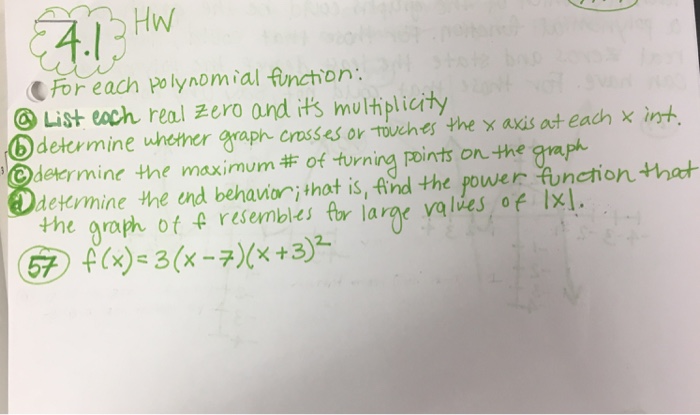 4.1 HW
For each polynomial function:
ⓐ List each real zero and it's multiplicity
ⓑ determine whether graph crosses or touches the x axis at each x int.
ⓒ determine the maximum # of turning points on the graph
ⓓ determine the end behavior; that is, find the power function that
the graph of f resembles for large values of |x|.
57 f(x) = 3(x-7)(x+3)²